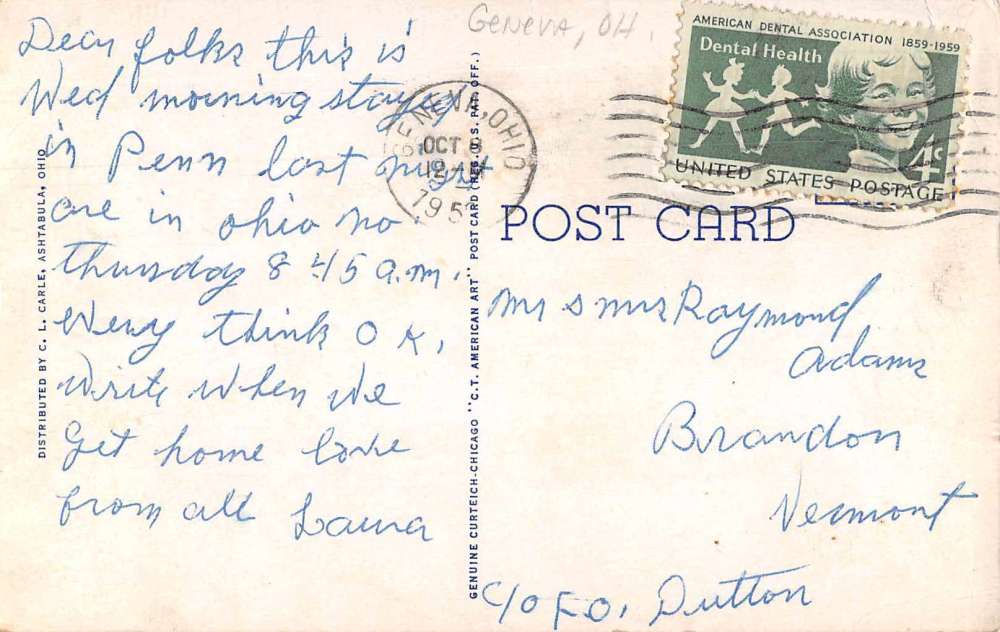 Geneva, OH.
Dear folks this is
Wed morning stayed
in Penn last night
are in ohio no
thursday 8 45 a.m.
Every think O K,
Write when we
get home love
from all Laura
DISTRIBUTED BY C. L. CARLE, ASHTABULA, OHIO
GENUINE CURTEICH-CHICAGO "C.T. AMERICAN ART" POST CARD (REG. U.S. PAT. OFF.)
GENEVA, OHIO
OCT 8
12
195
AMERICAN DENTAL ASSOCIATION 1859-1959
Dental Health
4¢
UNITED STATES POSTAGE
POST CARD
Mr & Mrs Raymond
Adams
Brandon
Vermont
c/o F.O. Dutton